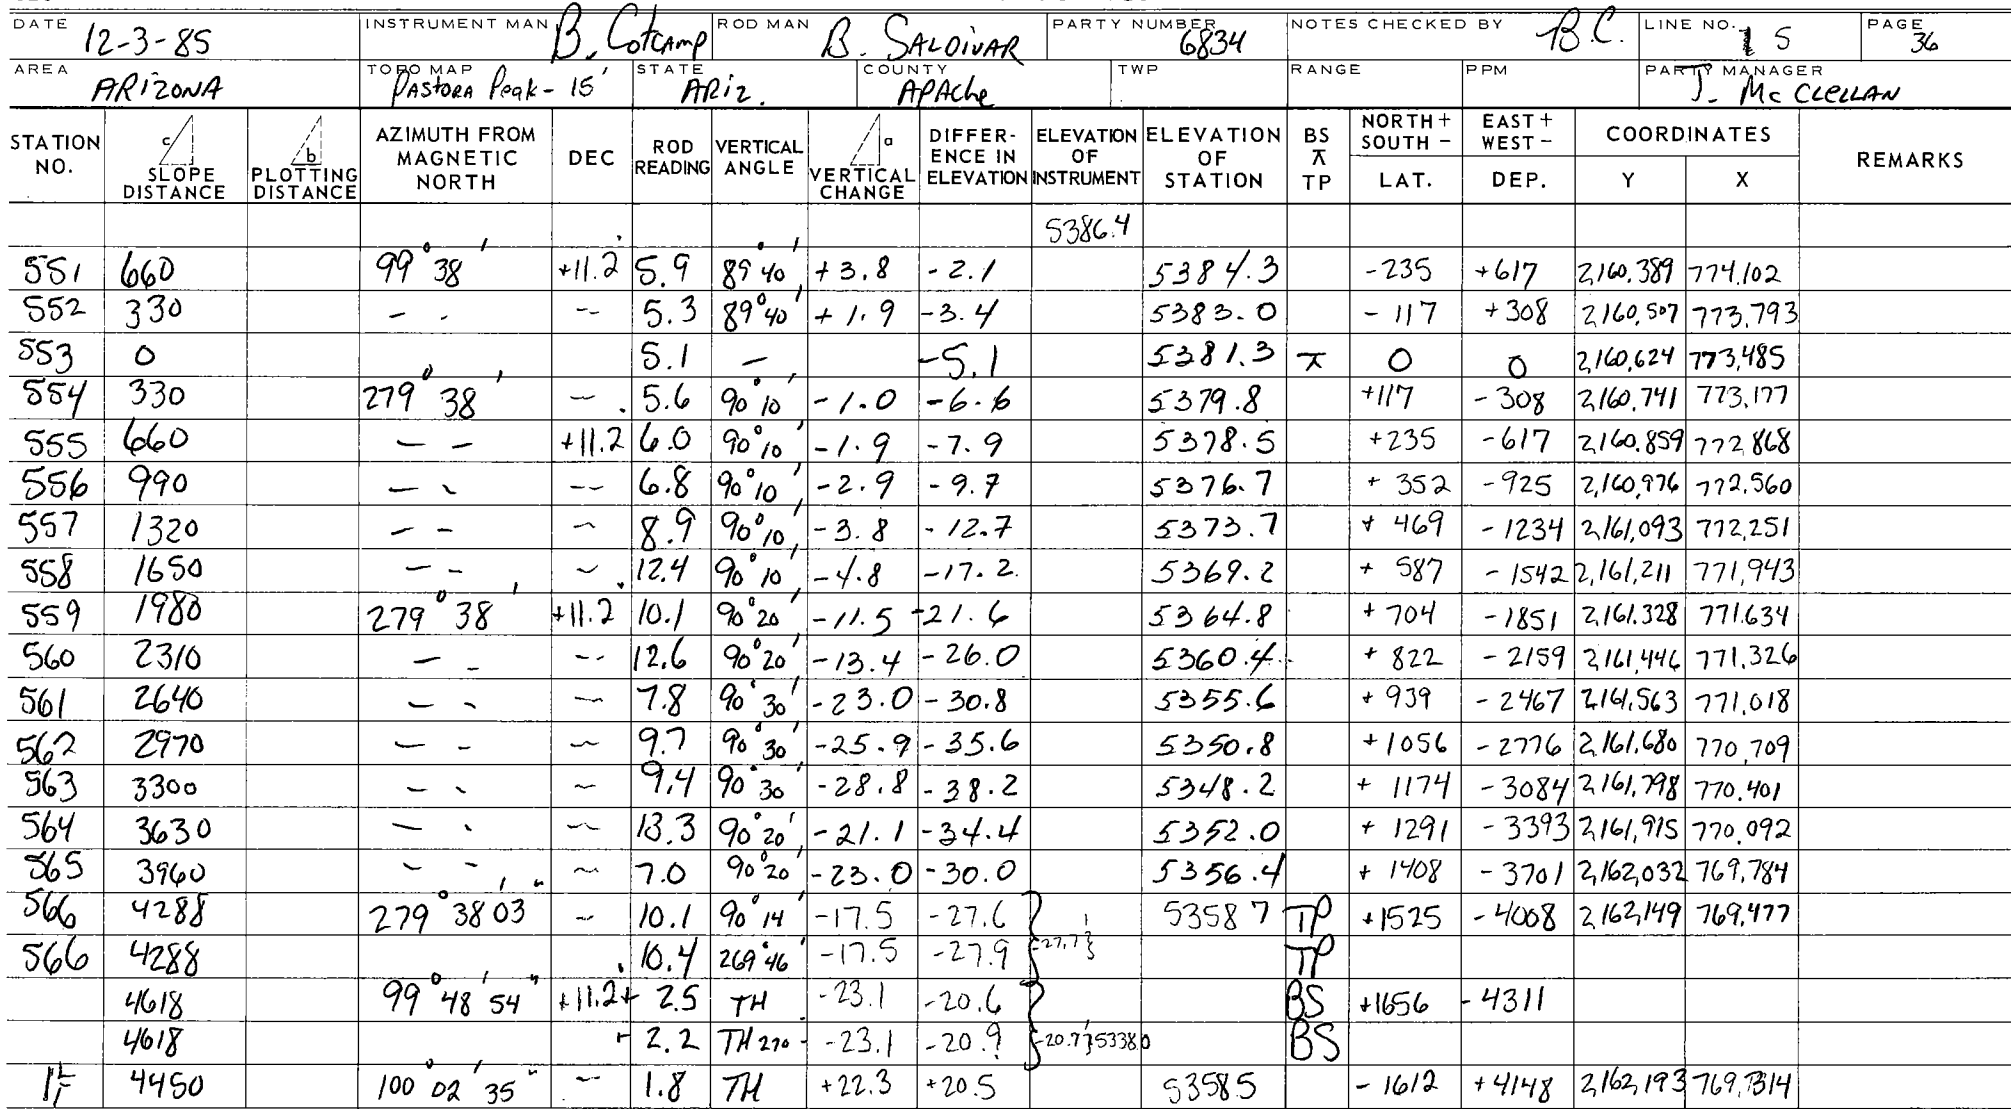 DATE 12-3-85 INSTRUMENT MAN B. Cotcamp ROD MAN B. SALDIVAR PARTY NUMBER 6834 NOTES CHECKED BY B.C. LINE NO. 5 PAGE 36
AREA ARIZONA TOPO MAP PASTORA Peak - 15' STATE ARiz. COUNTY APAChe TWP RANGE PPM PARTY MANAGER J. McCLELLAN
STATION NO. c SLOPE DISTANCE b PLOTTING DISTANCE AZIMUTH FROM MAGNETIC NORTH DEC ROD READING VERTICAL ANGLE a VERTICAL CHANGE DIFFERENCE IN ELEVATION ELEVATION OF INSTRUMENT ELEVATION OF STATION BS ⊼ TP NORTH + SOUTH - LAT. EAST + WEST - DEP. COORDINATES Y X REMARKS
5386.4
551 660 99° 38' +11.2 5.9 89°40' +3.8 -2.1 5384.3 -235 +617 2,160,389 774,102
552 330 - - -- 5.3 89°40' +1.9 -3.4 5383.0 -117 +308 2,160,507 773,793
553 0 5.1 - -5.1 5381.3 ⊼ 0 0 2,160,624 773,485
554 330 279° 38' - 5.6 90°10' -1.0 -6.6 5379.8 +117 -308 2,160,741 773,177
555 660 - - +11.2 6.0 90°10' -1.9 -7.9 5378.5 +235 -617 2,160,859 772,868
556 990 - - -- 6.8 90°10' -2.9 -9.7 5376.7 +352 -925 2,160,976 772,560
557 1320 - - - 8.9 90°10' -3.8 -12.7 5373.7 +469 -1234 2,161,093 772,251
558 1650 - - - 12.4 90°10' -4.8 -17.2 5369.2 +587 -1542 2,161,211 771,943
559 1980 279° 38' +11.2 10.1 90°20' -11.5 -21.6 5364.8 +704 -1851 2,161,328 771,634
560 2310 - - -- 12.6 90°20' -13.4 -26.0 5360.4 +822 -2159 2,161,446 771,326
561 2640 - - - 7.8 90°30' -23.0 -30.8 5355.6 +939 -2467 2,161,563 771,018
562 2970 - - - 9.7 90°30' -25.9 -35.6 5350.8 +1056 -2776 2,161,680 770,709
563 3300 - - - 9.4 90°30' -28.8 -38.2 5348.2 +1174 -3084 2,161,798 770,401
564 3630 - - - 13.3 90°20' -21.1 -34.4 5352.0 +1291 -3393 2,161,915 770,092
565 3960 - - - 7.0 90°20' -23.0 -30.0 5356.4 +1408 -3701 2,162,032 769,784
566 4288 279° 38' 03" - 10.1 90°14' -17.5 -27.6 5358 7 TP +1525 -4008 2,162,149 769,477
566 4288 10.4 269°46' -17.5 -27.9 -27.7 TP
4618 99° 48' 54" +11.2 + 2.5 TH -23.1 -20.6 BS +1656 -4311
4618 + 2.2 TH 270 -23.1 -20.9 -20.7 53380 BS
4450 100° 02' 35" - 1.8 TH +22.3 +20.5 53585 -1612 +4148 2,162,193 769,314